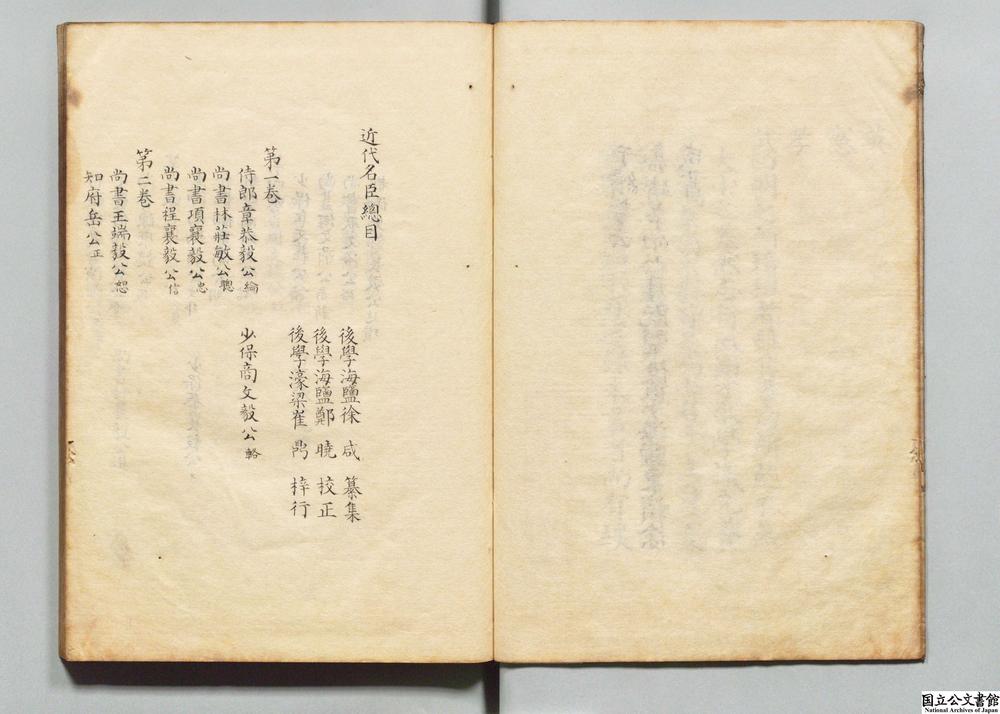 近代名臣總目
後學海鹽徐 咸 纂集
後學海鹽鄭 曉 校正
後學濠梁崔 鼎 梓行
第一卷
侍郎章恭毅公綸 少保商文毅公輅
尚書林莊敏公聰
尚書項襄毅公忠
尚書程襄毅公信
第二卷
尚書王端毅公恕
知府岳公正
国立公文書館
National Archives of Japan